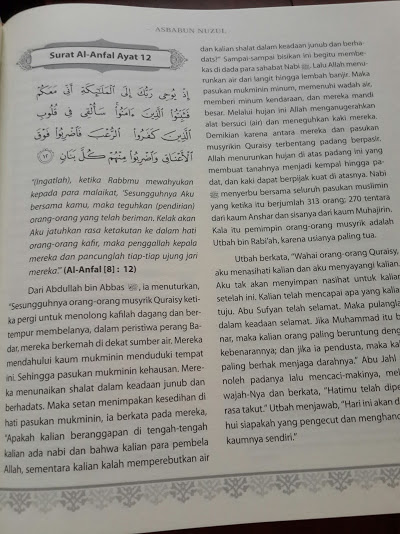 ASBABUN NUZUL
Surat Al-Anfal Ayat 12
إِذْ يُوحِي رَبُّكَ إِلَى الْمَلَائِكَةِ أَنِّي مَعَكُمْ
فَثَبِّتُوا الَّذِينَ آمَنُوا سَأُلْقِي فِي قُلُوبِ
الَّذِينَ كَفَرُوا الرُّعْبَ فَاضْرِبُوا فَوْقَ
الْأَعْنَاقِ وَاضْرِبُوا مِنْهُمْ كُلَّ بَنَانٍ ١٢
"(Ingatlah), ketika Rabbmu mewahyukan
kepada para malaikat, 'Sesungguhnya Aku
bersama kamu, maka teguhkan (pendirian)
orang-orang yang telah beriman. Kelak akan
Aku jatuhkan rasa ketakutan ke dalam hati
orang-orang kafir, maka penggallah kepala
mereka dan pancunglah tiap-tiap ujung jari
mereka.'" (Al-Anfal [8] : 12)
Dari Abdullah bin Abbas, ia menuturkan,
"Sesungguhnya orang-orang musyrik Quraisy ketika
pergi untuk menolong kafilah dagang dan ber-
tempur membelanya, dalam peristiwa perang Ba-
dar, mereka berkemah di dekat sumber air. Mereka
mendahului kaum mukminin menduduki tempat
ini. Sehingga pasukan mukminin kehausan. Mere-
ka menunaikan shalat dalam keadaan junub dan
berhadats. Maka setan menimpakan kesedihan di
hati pasukan mukminin, ia berkata pada mereka,
'Apakah kalian beranggapan di tengah-tengah
kalian ada nabi dan bahwa kalian para pembela
Allah, sementara kalian kalah memperebutkan air
dan kalian shalat dalam keadaan junub dan berha-
dats?' Sampai-sampai bisikan ini begitu membe-
kas di dada para sahabat Nabi ﷺ. Lalu Allah menu-
runkan air dari langit hingga lembah banjir. Maka
pasukan mukminin minum, memenuhi wadah air,
memberi minum kendaraan, dan mereka mandi
besar. Melalui hujan ini Allah menganugerahkan
alat bersuci (air) dan meneguhkan kaki mereka.
Demikian karena antara mereka dan pasukan
musyrikin Quraisy terbentang padang berpasir.
Allah menurunkan hujan di atas padang ini yang
membuat tanahnya menjadi kempal hingga pa-
dat, dan kaki dapat berpijak kuat di atasnya. Nabi
ﷺ menyerbu bersama seluruh pasukan muslimin
yang ketika itu berjumlah 313 orang; 270 tentara
dari kaum Anshar dan sisanya dari kaum Muhajirin.
Kala itu pemimpin orang-orang musyrik adalah
Utbah bin Rabi'ah, karena usianya paling tua.
Utbah berkata, "Wahai orang-orang Quraisy,
aku menasihati kalian dan aku menyayangi kalian.
Aku tak akan menyimpan nasihat untuk kalian
setelah ini. Kalian telah mencapai apa yang kalian
tuju. Abu Sufyan telah selamat. Maka pulanglah
dalam keadaan selamat. Jika Muhammad itu be-
nar, maka kalian orang paling beruntung dengan
kebenarannya; dan jika ia pendusta, maka kalian
paling berhak menjaga darahnya." Abu Jahl me-
noleh padanya lalu mencaci-makinya,
wajah-Nya dan berkata, "Hatimu telah
rasa takut." Utbah menjawab, "Hari ini akan
hui siapakah yang pengecut dan
kaumnya sendiri."